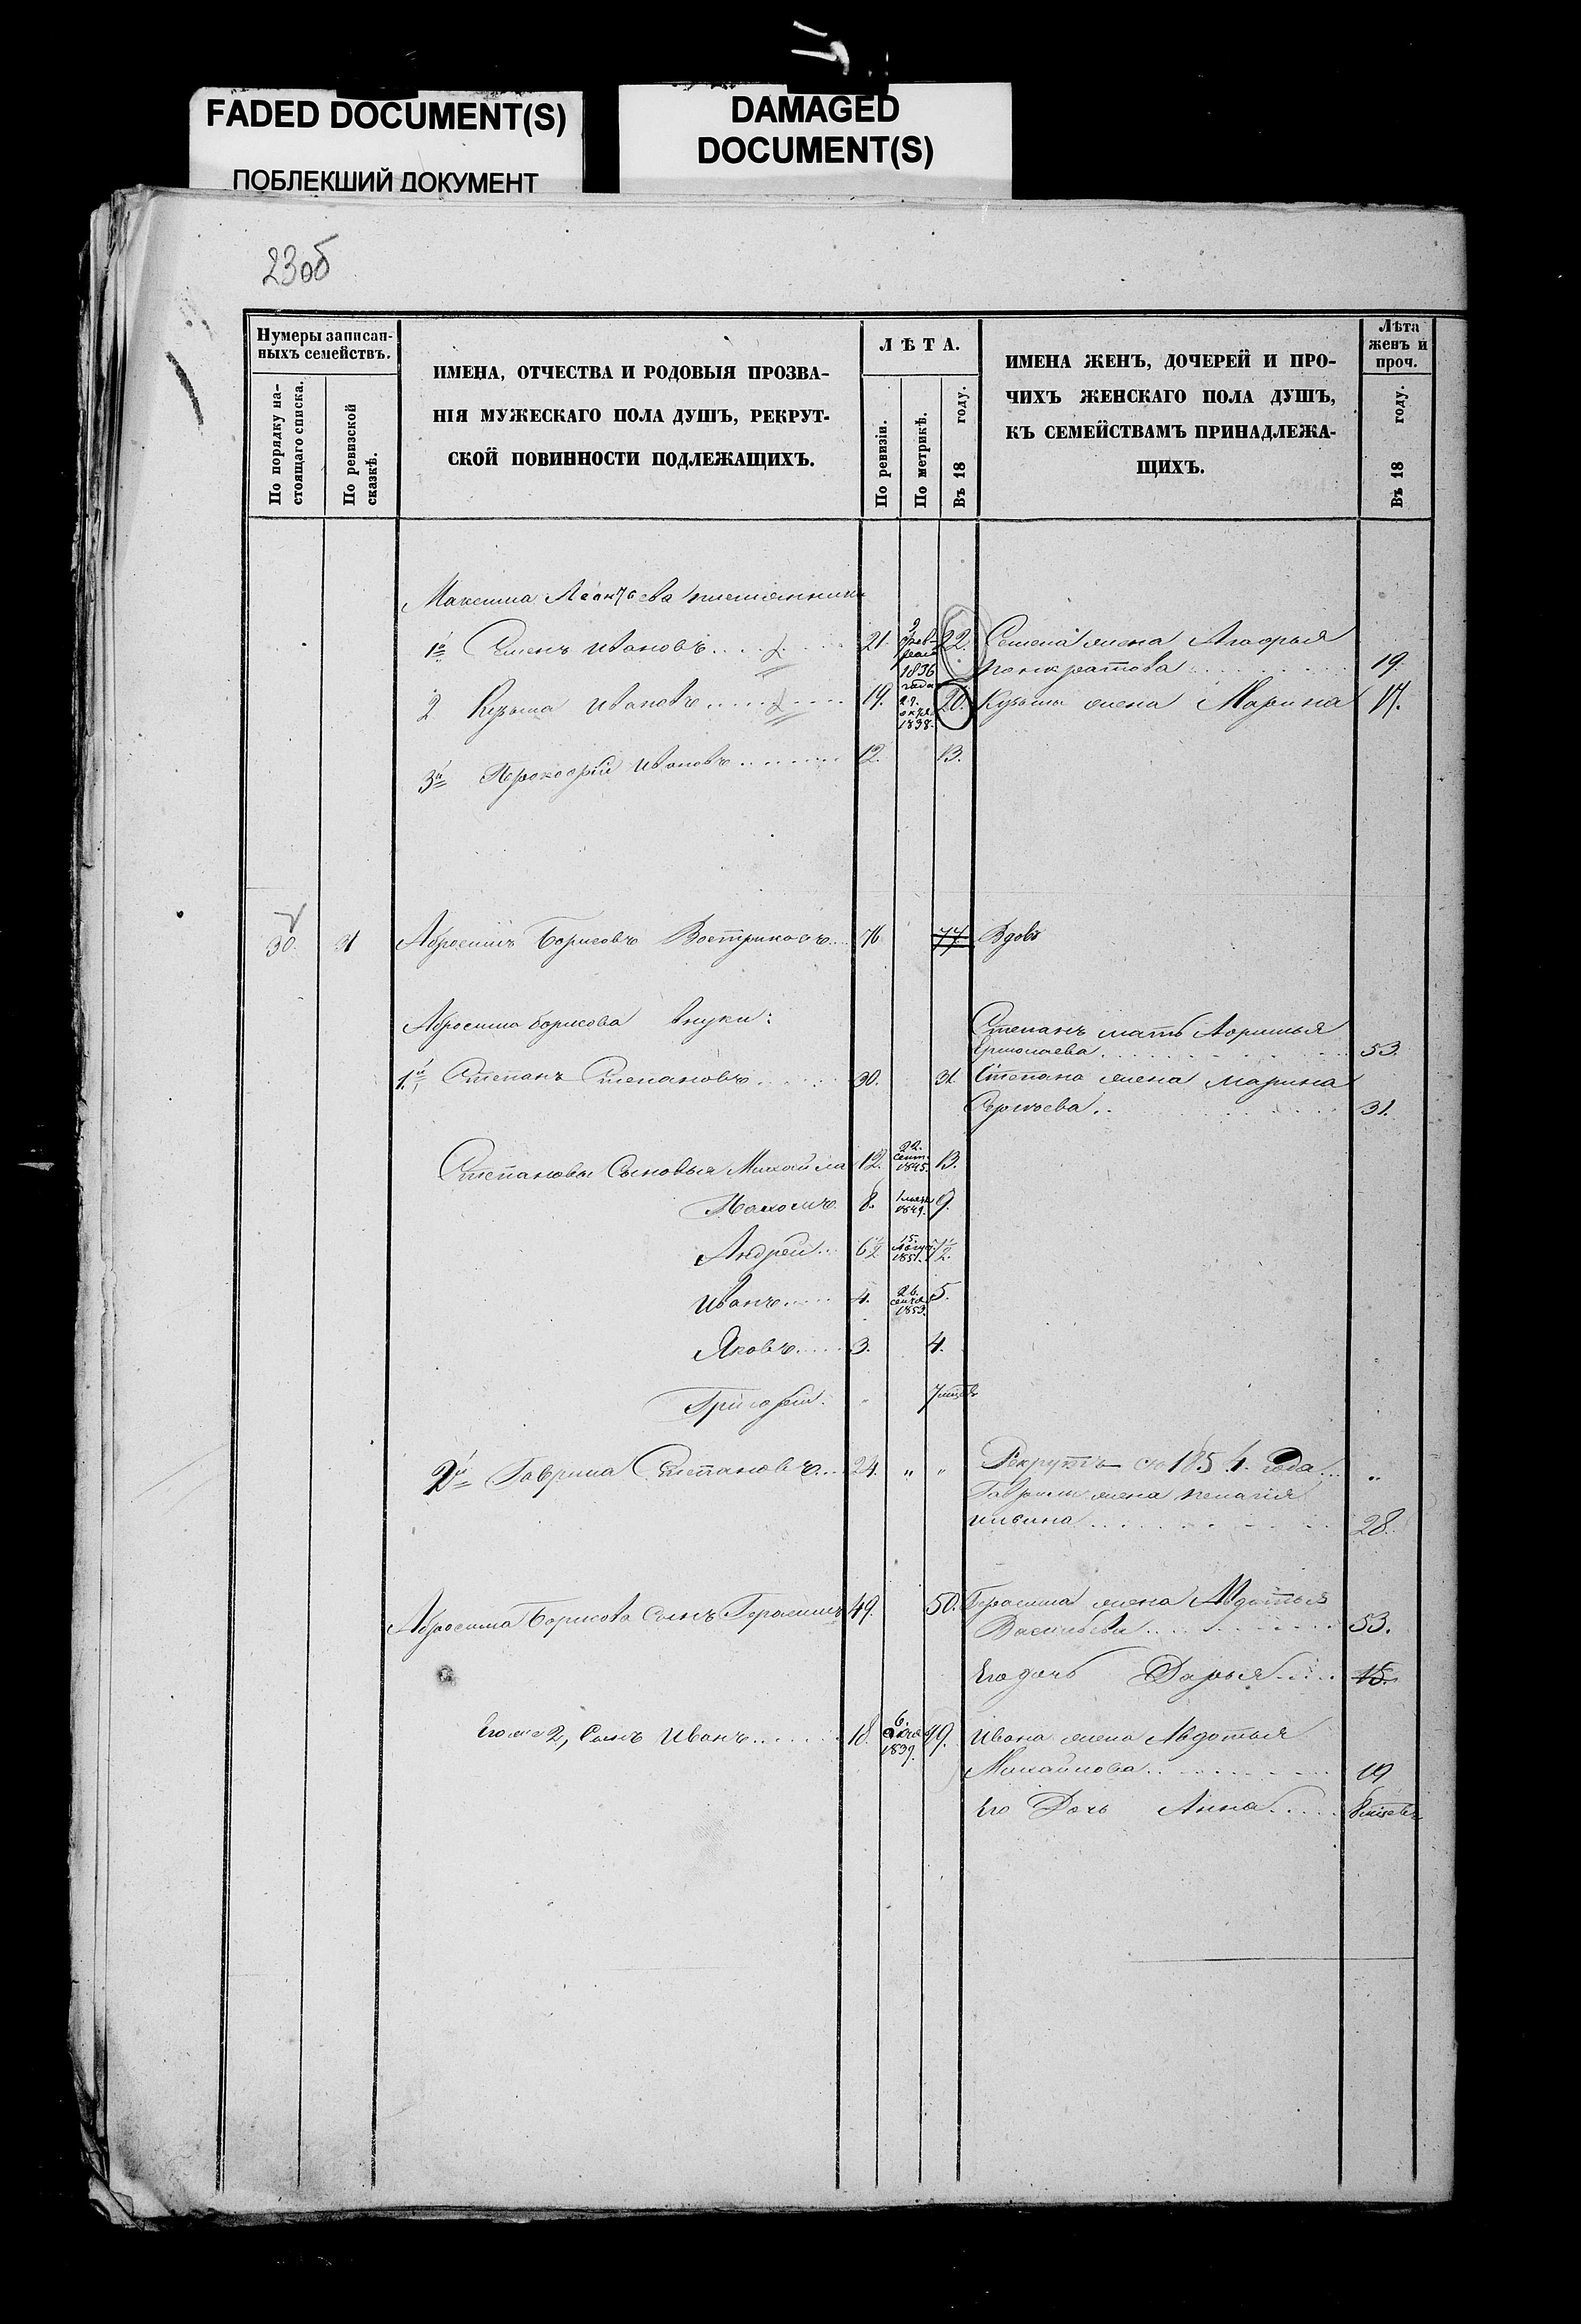 FADED DOCUMENT(S)
ПОБЛЕКШИЙ ДОКУМЕНТ
DAMAGED
DOCUMENT(S)
23об
Нумеры записан-
ныхъ семействъ.
По порядку на-
стоящаго списка.
По ревизской
сказкѣ.
ИМЕНА, ОТЧЕСТВА И РОДОВЫЯ ПРОЗВА-
НІЯ МУЖЕСКАГО ПОЛА ДУШЪ, РЕКРУТ-
СКОЙ ПОВИННОСТИ ПОДЛЕЖАЩИХЪ.
ЛѢТА.
По ревизіи.
По метрикѣ.
Въ 18 году.
ИМЕНА ЖЕНЪ, ДОЧЕРЕЙ И ПРО-
ЧИХЪ ЖЕНСКАГО ПОЛА ДУШЪ,
КЪ СЕМЕЙСТВАМЪ ПРИНАДЛЕЖА-
ЩИХЪ.
Лѣта
женъ и
проч.
Въ 18 году.
Максима Леонтьева племянники
1й Семенъ Ивановъ 21. 1836 года 22. Семена жена
Понкратова 19.
2 Кузьма Ивановъ 19. 1838. 20. Кузьмы жена Марина 17.
3й Прокофій Ивановъ 12. 13.
30. Абросимъ Борисовъ Востриковъ 76 77 Вдовъ
Абросима Борисова внуки:
Степанъ мать
Ермолаева 53.
1й Степанъ Степановъ 30. 31. Степана жена Марина
31.
Степановы Сыновья Михайла 12. 22. Сент. 1845. 13.
Пахомъ 8. 1849. 9.
Андрей 6 1/2 15. Авгус. 1851. 7 1/2.
Иванъ 4. 26. 1853. 5.
Яковъ 3. 4.
Григорій " 7 мцевъ
2й Гаврила Степановъ 24. " " Рекрутъ съ 1854. года "
Гаврилы жена Пелагія
Ильина 28.
Абросима Борисова Сынъ Герасимъ 49. 50. Герасима жена Авдотья
Васильева 53.
Его дочь Дарья 15.
Его же 2, Сынъ Иванъ 18. 6. 1839. 19. Ивана жена Авдотья
Михайлова 19
Его Дочь Анна 8 мцевъ